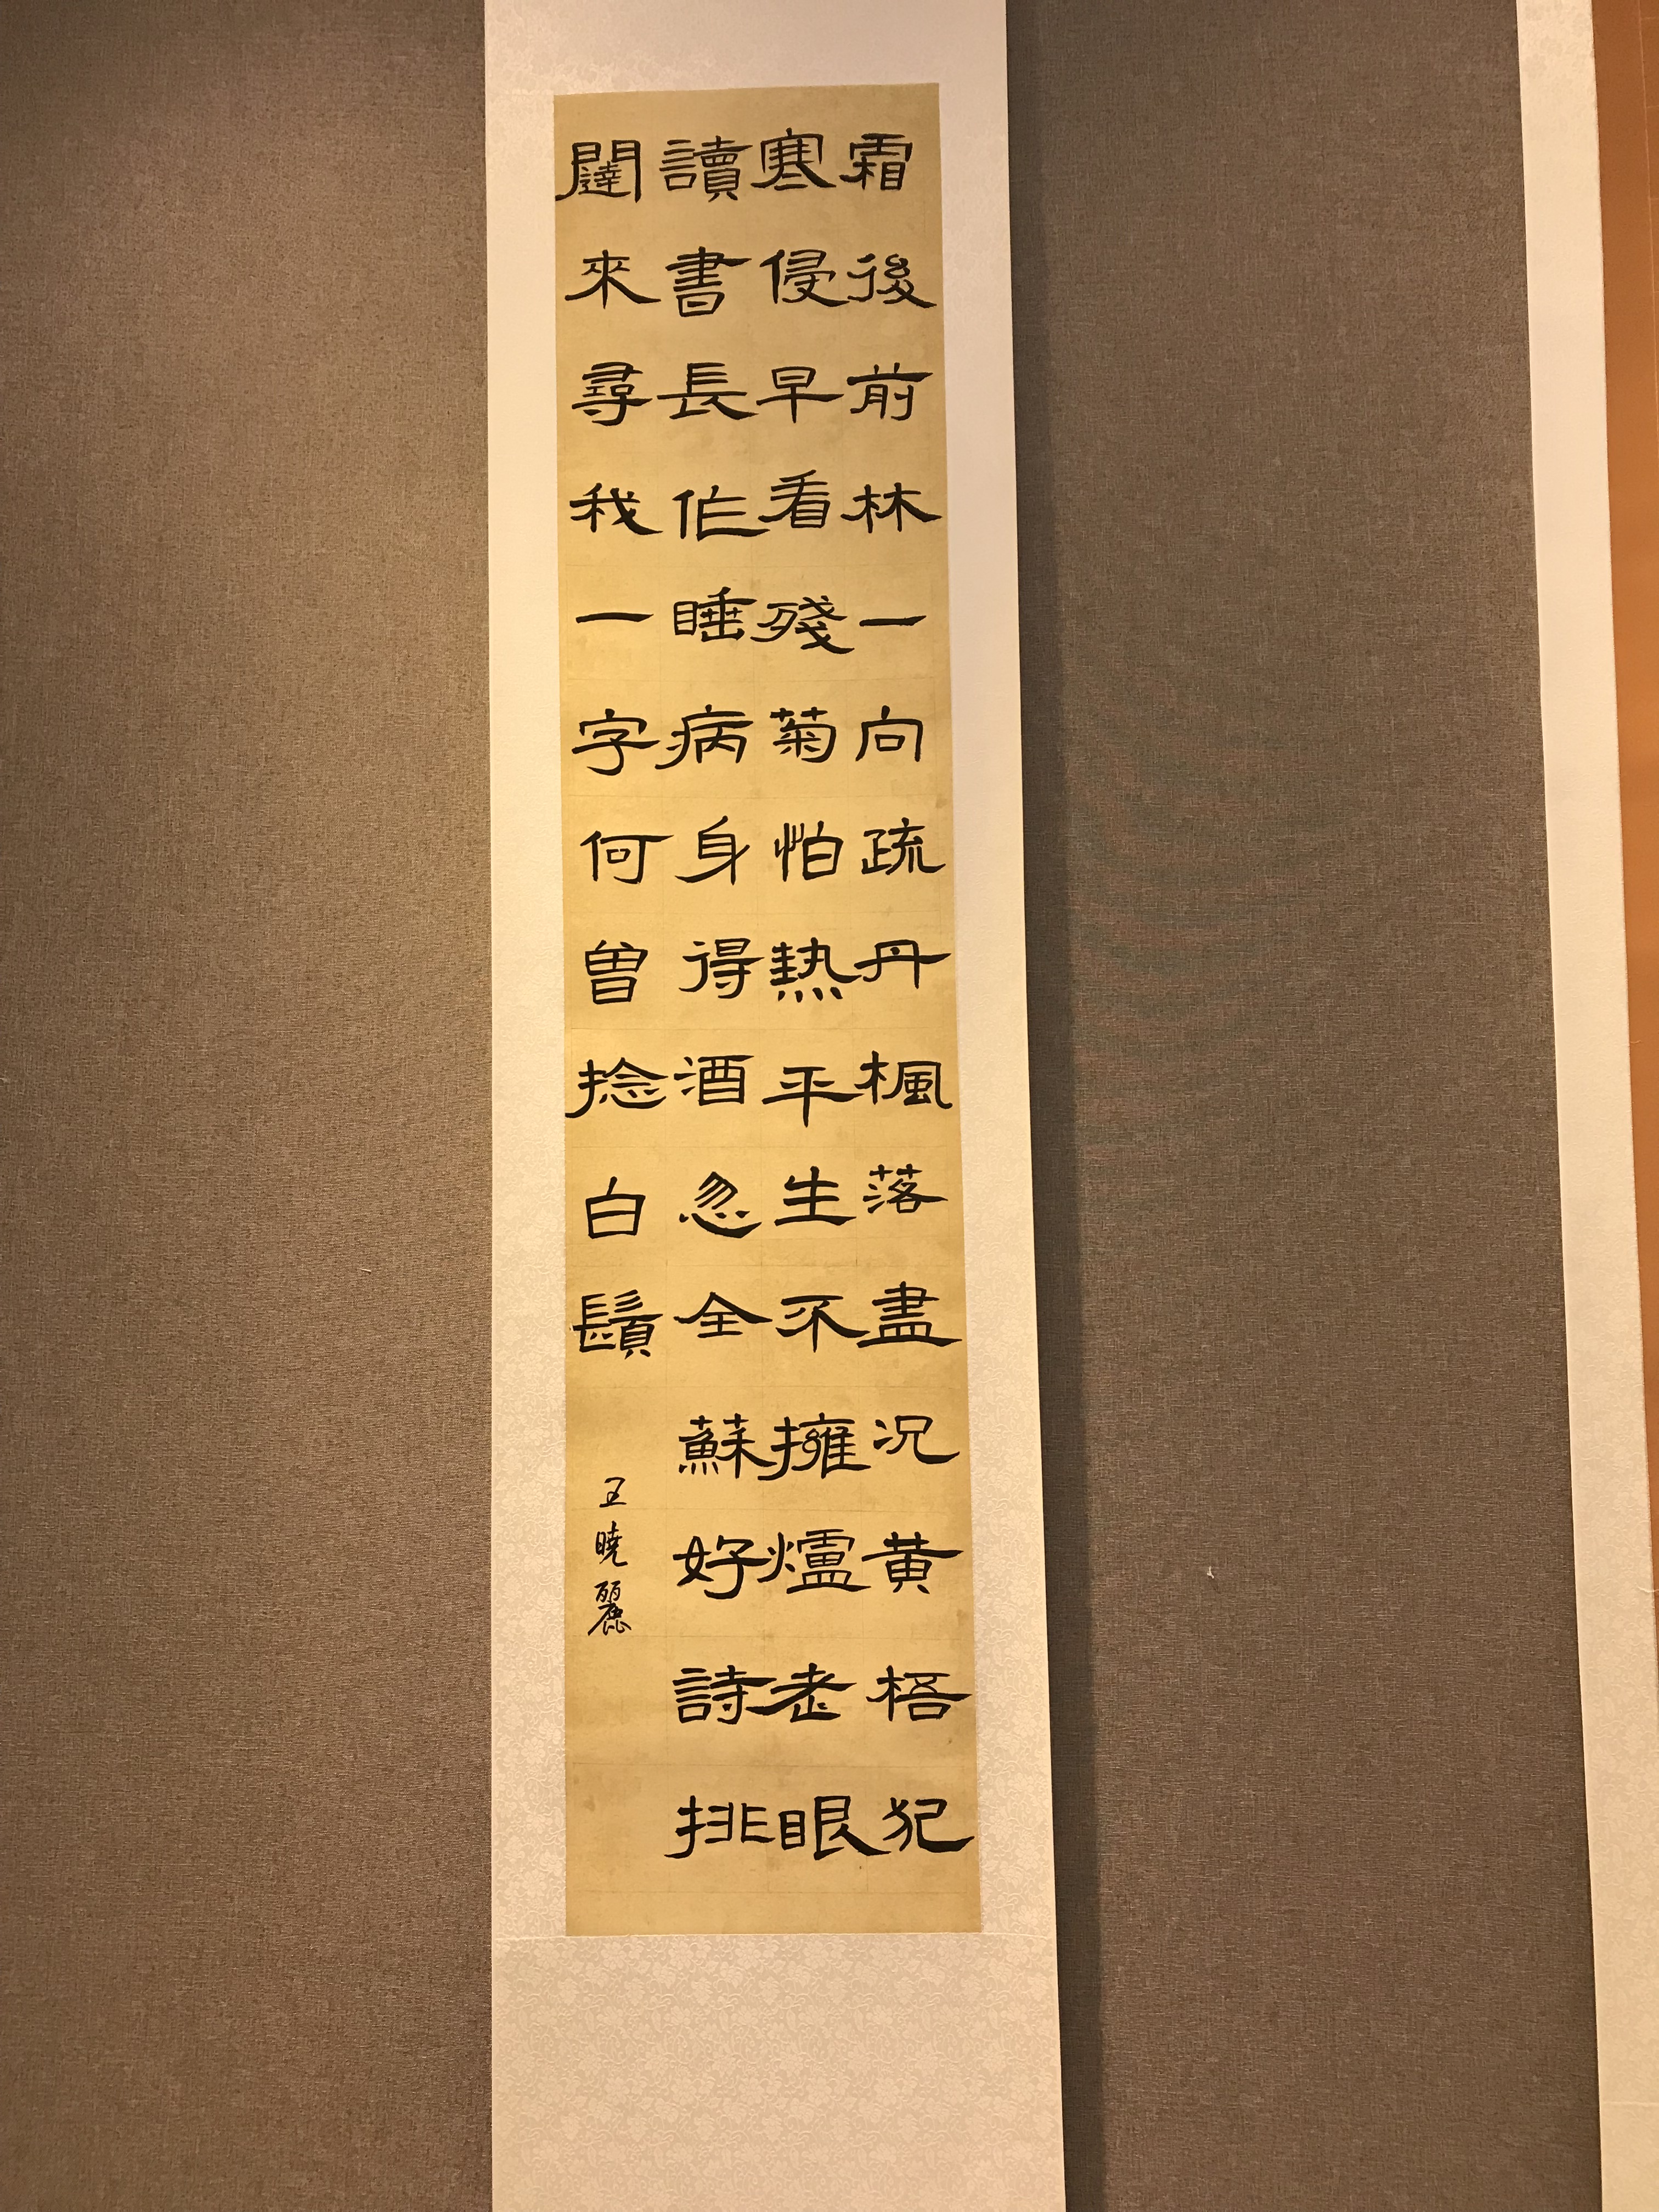 霜後前林一向疏丹楓落盡況黃梧犯
寒侵早看殘菊怕熱平生不擁爐老眼
讀書長作睡病身得酒忽全蘇好詩排
闥來尋我一字何曾捻白鬚
王曉麗